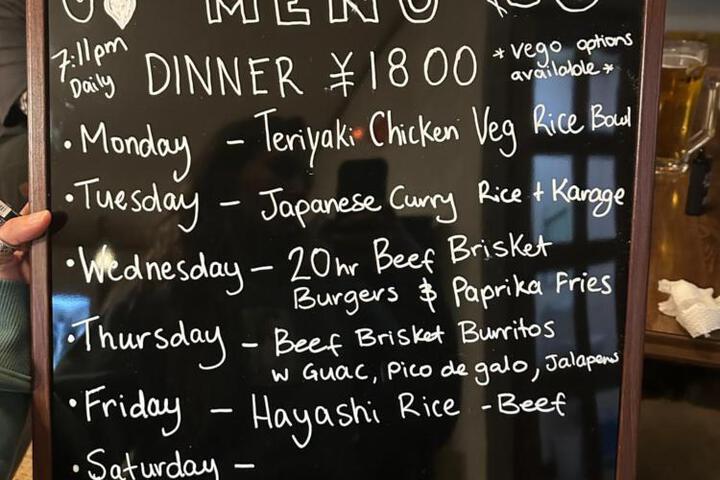 MENU
7:11pm
Daily
DINNER ¥1800
*vego options
available*
• Monday - Teriyaki Chicken Veg Rice Bowl
• Tuesday - Japanese Curry Rice + Karage
• Wednesday - 20hr Beef Brisket
Burgers & Paprika Fries
• Thursday - Beef Brisket Burritos
w Guac, Pico de galo, Jalapens
• Friday - Hayashi Rice - Beef
• Saturday -